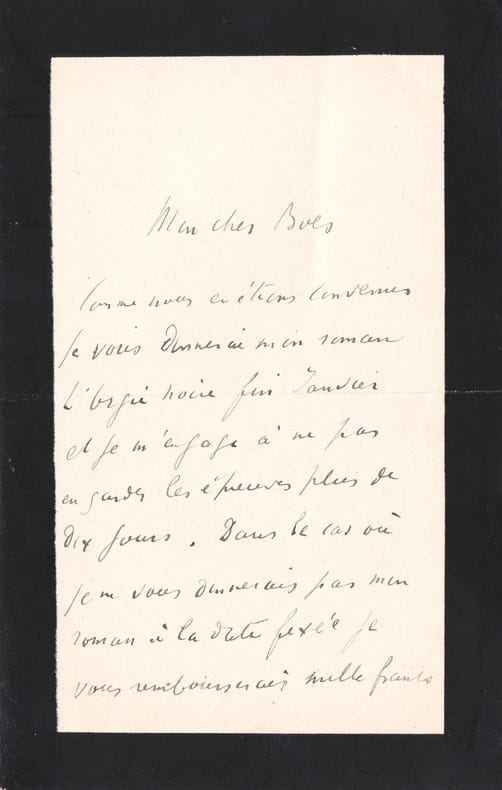 Mon cher Boes
Comme nous en étions convenus
je vous donnerai mon roman
L'Orgie noire fin Janvier
et je m'engage à ne pas
en garder les épreuves plus de
dix jours. Dans le cas où
je ne vous donnerais pas mon
roman à la date fixée je
vous rembourserais mille francs